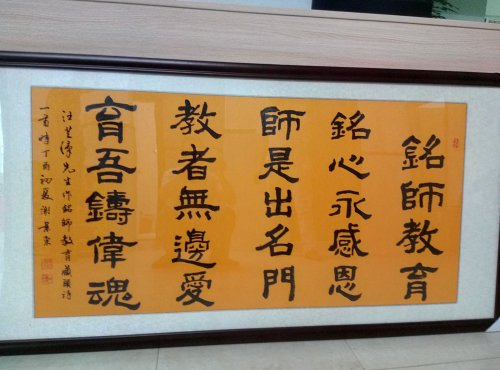 銘師教育
銘心永感恩
師是出名門
教者無邊愛
育吾鑄偉魂
先生作銘師教育藏頭詩
一首時丁酉初夏謝景